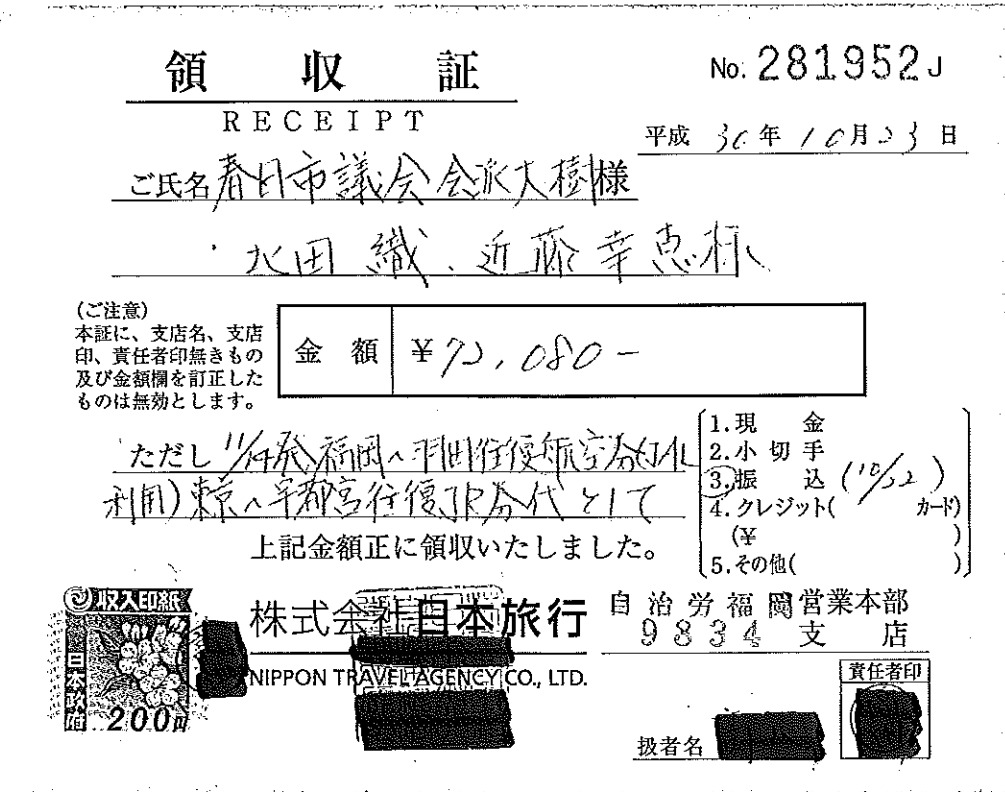 領収証
No. 281952J
RECEIPT
平成 30年 10月23日
ご氏名 春日市議会 会派大樹様
北田 織、近藤幸恵様
(ご注意)
本証に、支店名、支店
印、責任者印無きもの
及び金額欄を訂正した
ものは無効とします。
金額 ¥72,080-
ただし 11/14発 福岡~羽田往復航空券(JAL
利用)東京~宇都宮往復JR券代として
上記金額正に領収いたしました。
1.現金
2.小切手
3.振込(10/22)
4.クレジット( カード)
(¥ )
5.その他( )
収入印紙
日本政府
200円
株式会社日本旅行
NIPPON TRAVEL AGENCY CO., LTD.
自治労福岡営業本部
9834支店
責任者印
扱者名